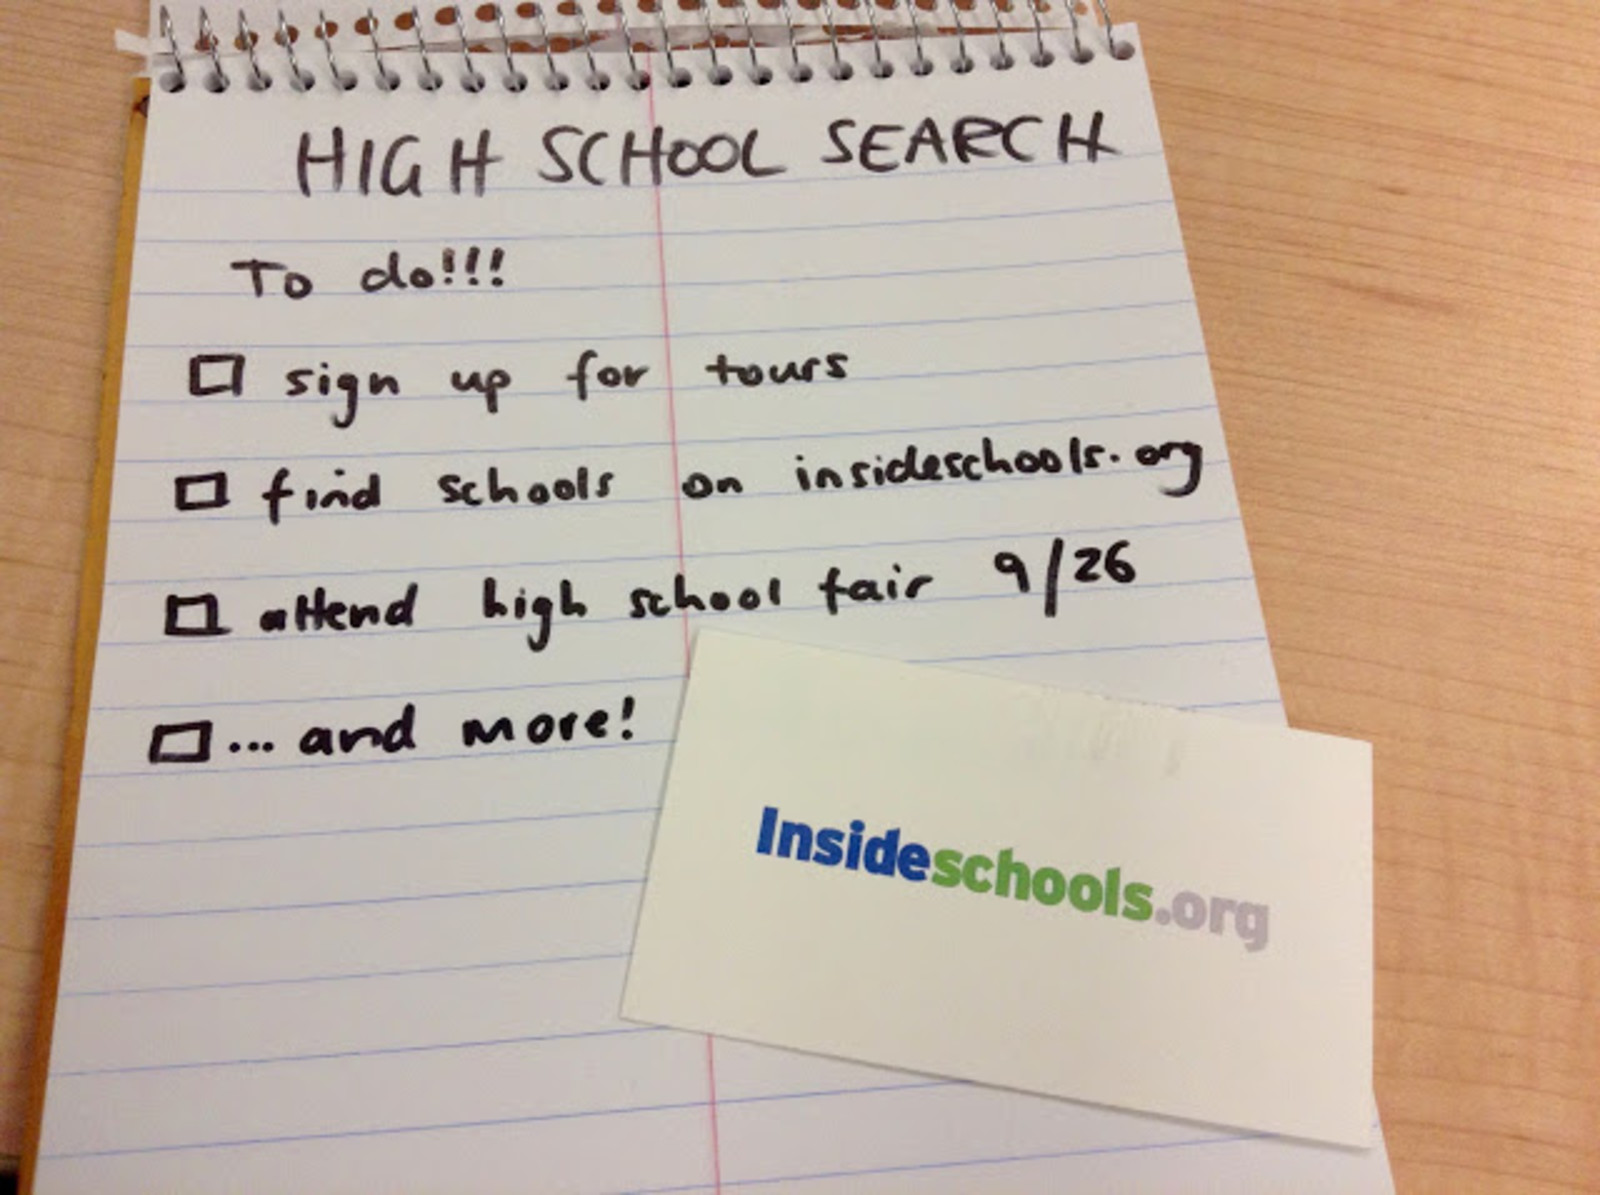 HIGH SCHOOL SEARCH
To do!!!
sign up for tours
find schools on insideschools.org
attend high school fair 9/26
... and more!
Insideschools.org